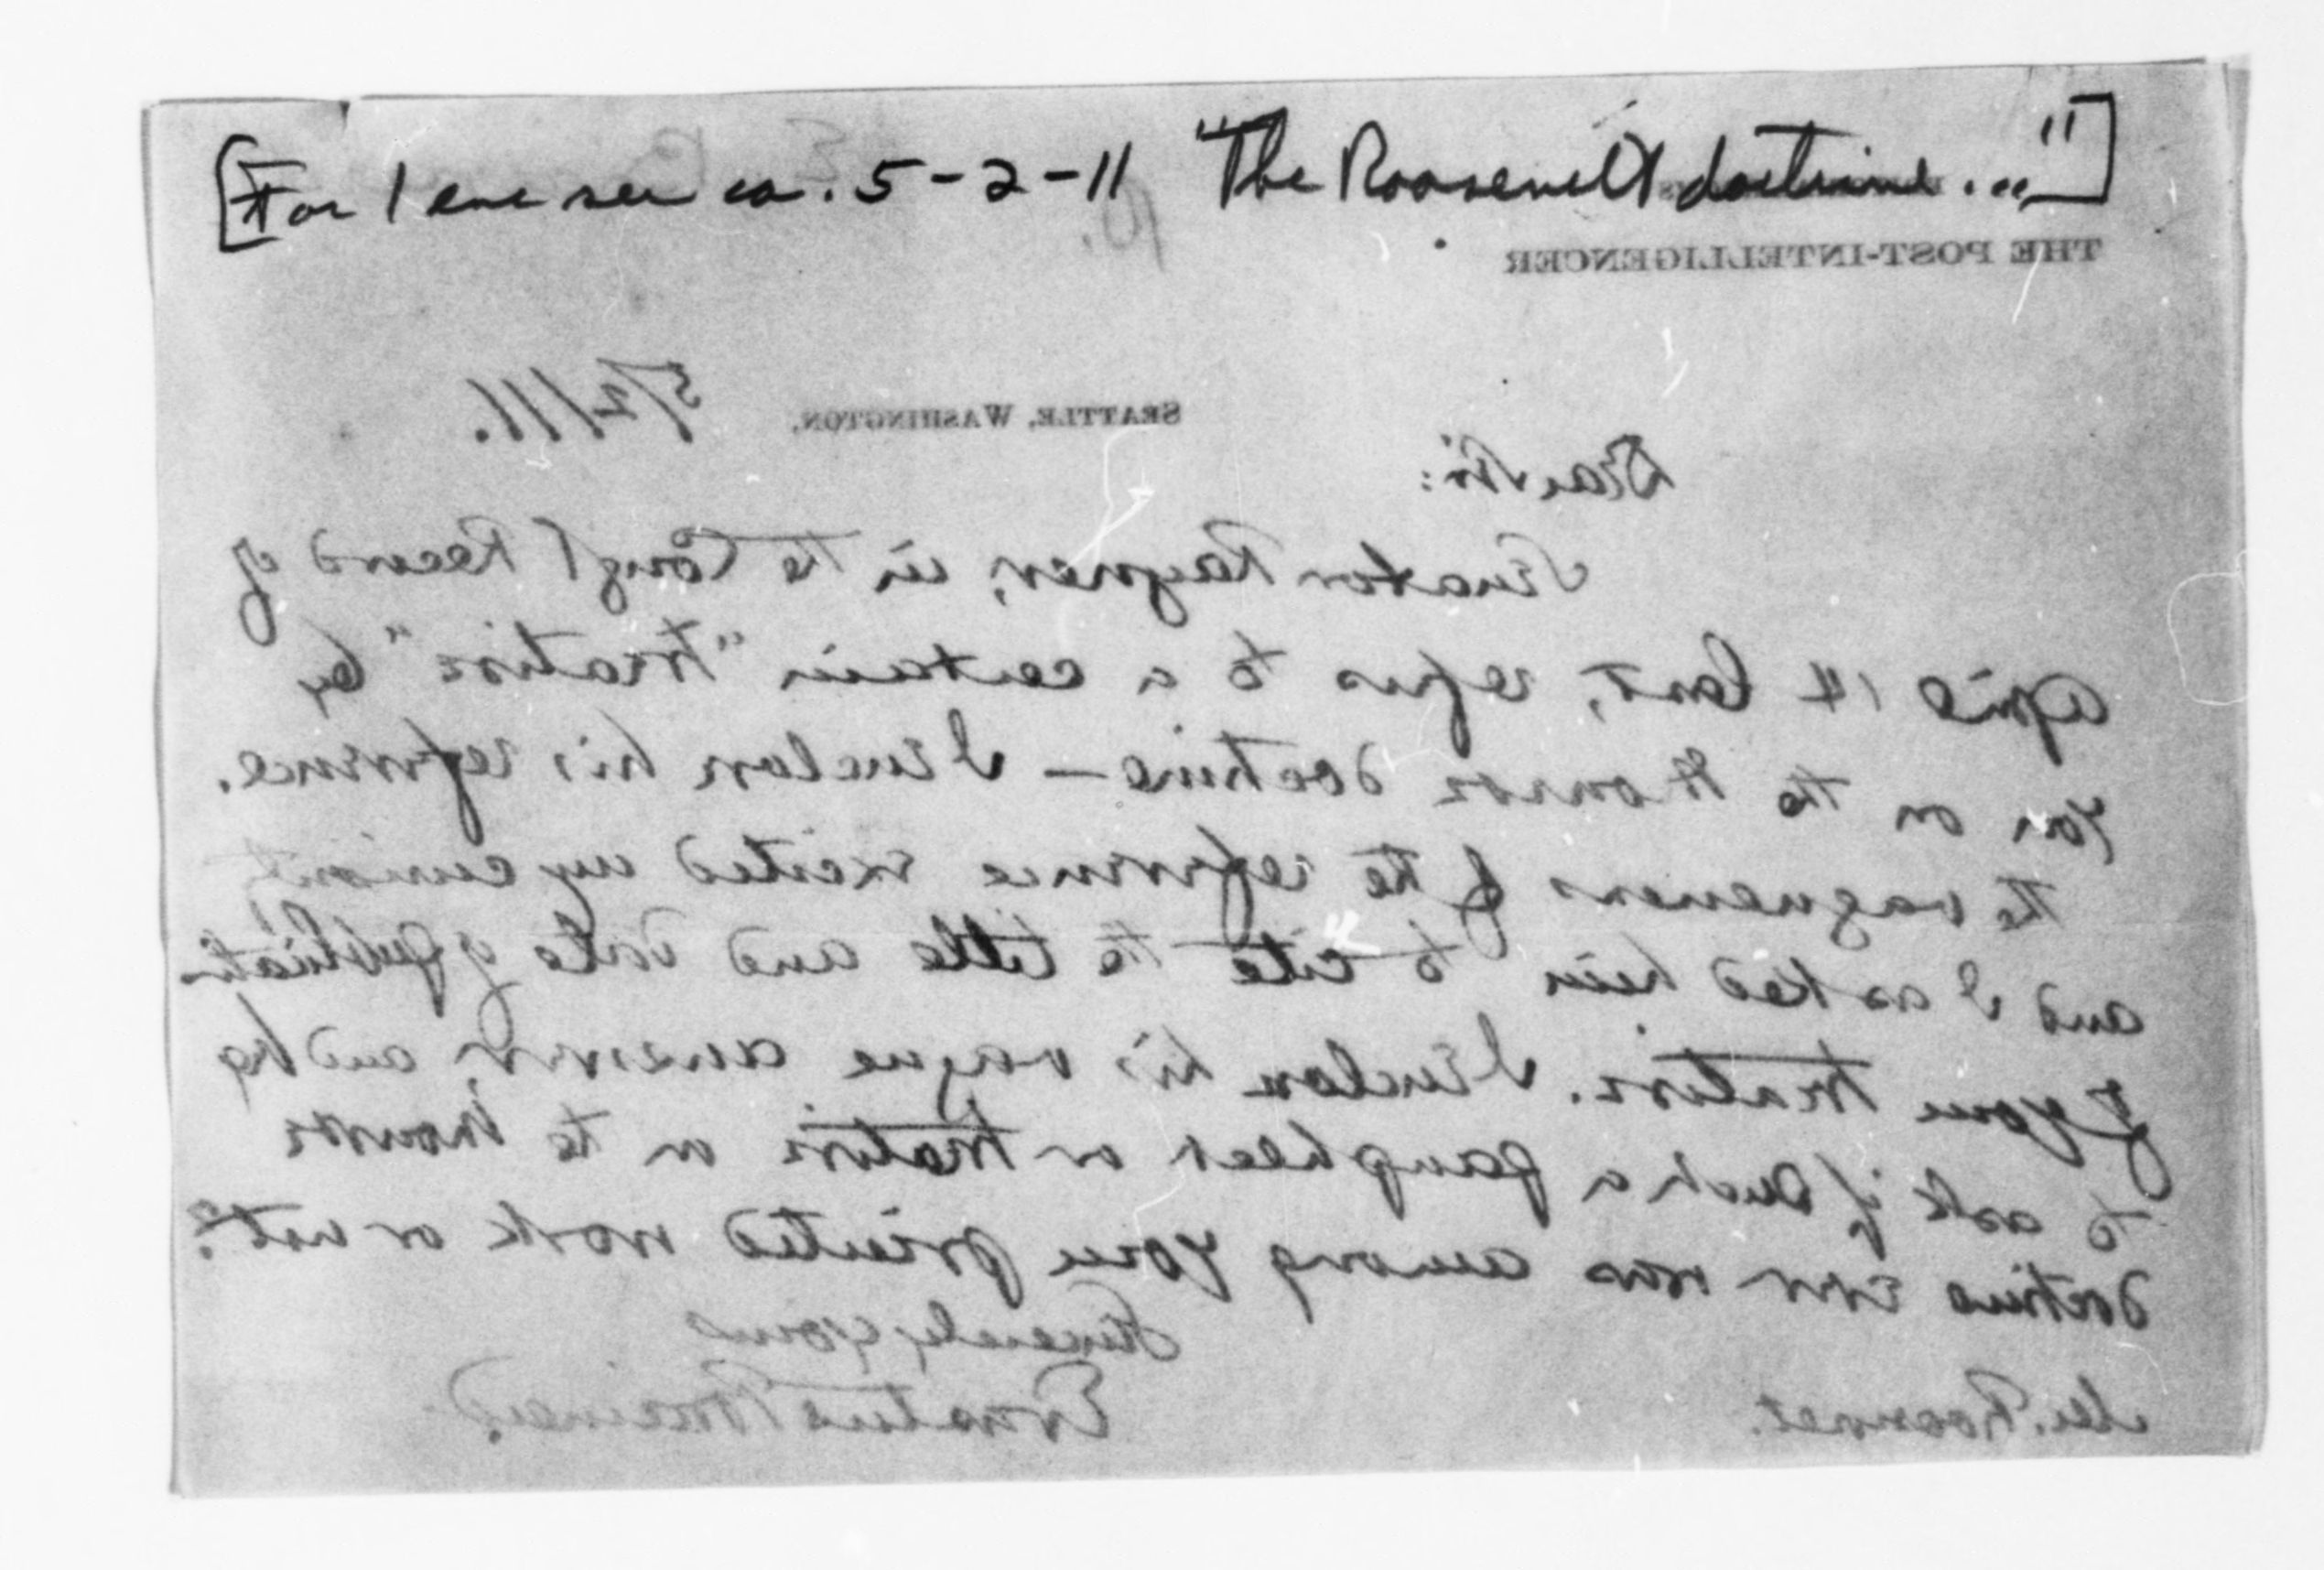 [For 1 enc see ca. 5-2-11 "The Roosevelt doctrine..."]
THE POST-INTELLIGENCER
SEATTLE, WASHINGTON. 5/2/11.
Dear Sir:
Senator Rayner, in the Cong'l Record of
April 14 last, refers to a certain "treatise" by
you on the Monroe doctrine — I enclose his reference.
The vagueness of the reference excited my curiosity
and I asked him to cite the title and date of publication
of your treatise. I enclose his vague answer, and beg
to ask if such a pamphlet or treatise on the Monroe
doctrine ever was among your printed work or not?
Sincerely yours
Erastus Brainerd.
Mr. Roosevelt.